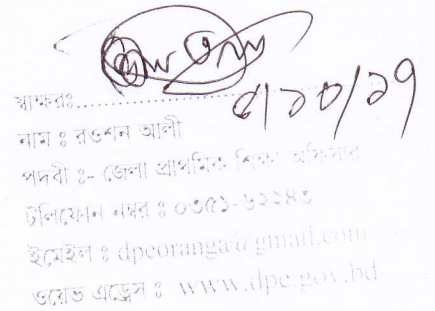 স্বাক্ষরঃ....................
৫/১০/১৭
নাম ঃ রওশন আলী
পদবী ঃ- জেলা প্রাথমিক শিক্ষা অফিসার
টলিফোন নম্বর ঃ ০৩৫১-৬২২৪৩
ইমেইল ঃ dpeoranga@gmail.com
ওয়েভ এড্রেস ঃ www.dpe.gov.bd